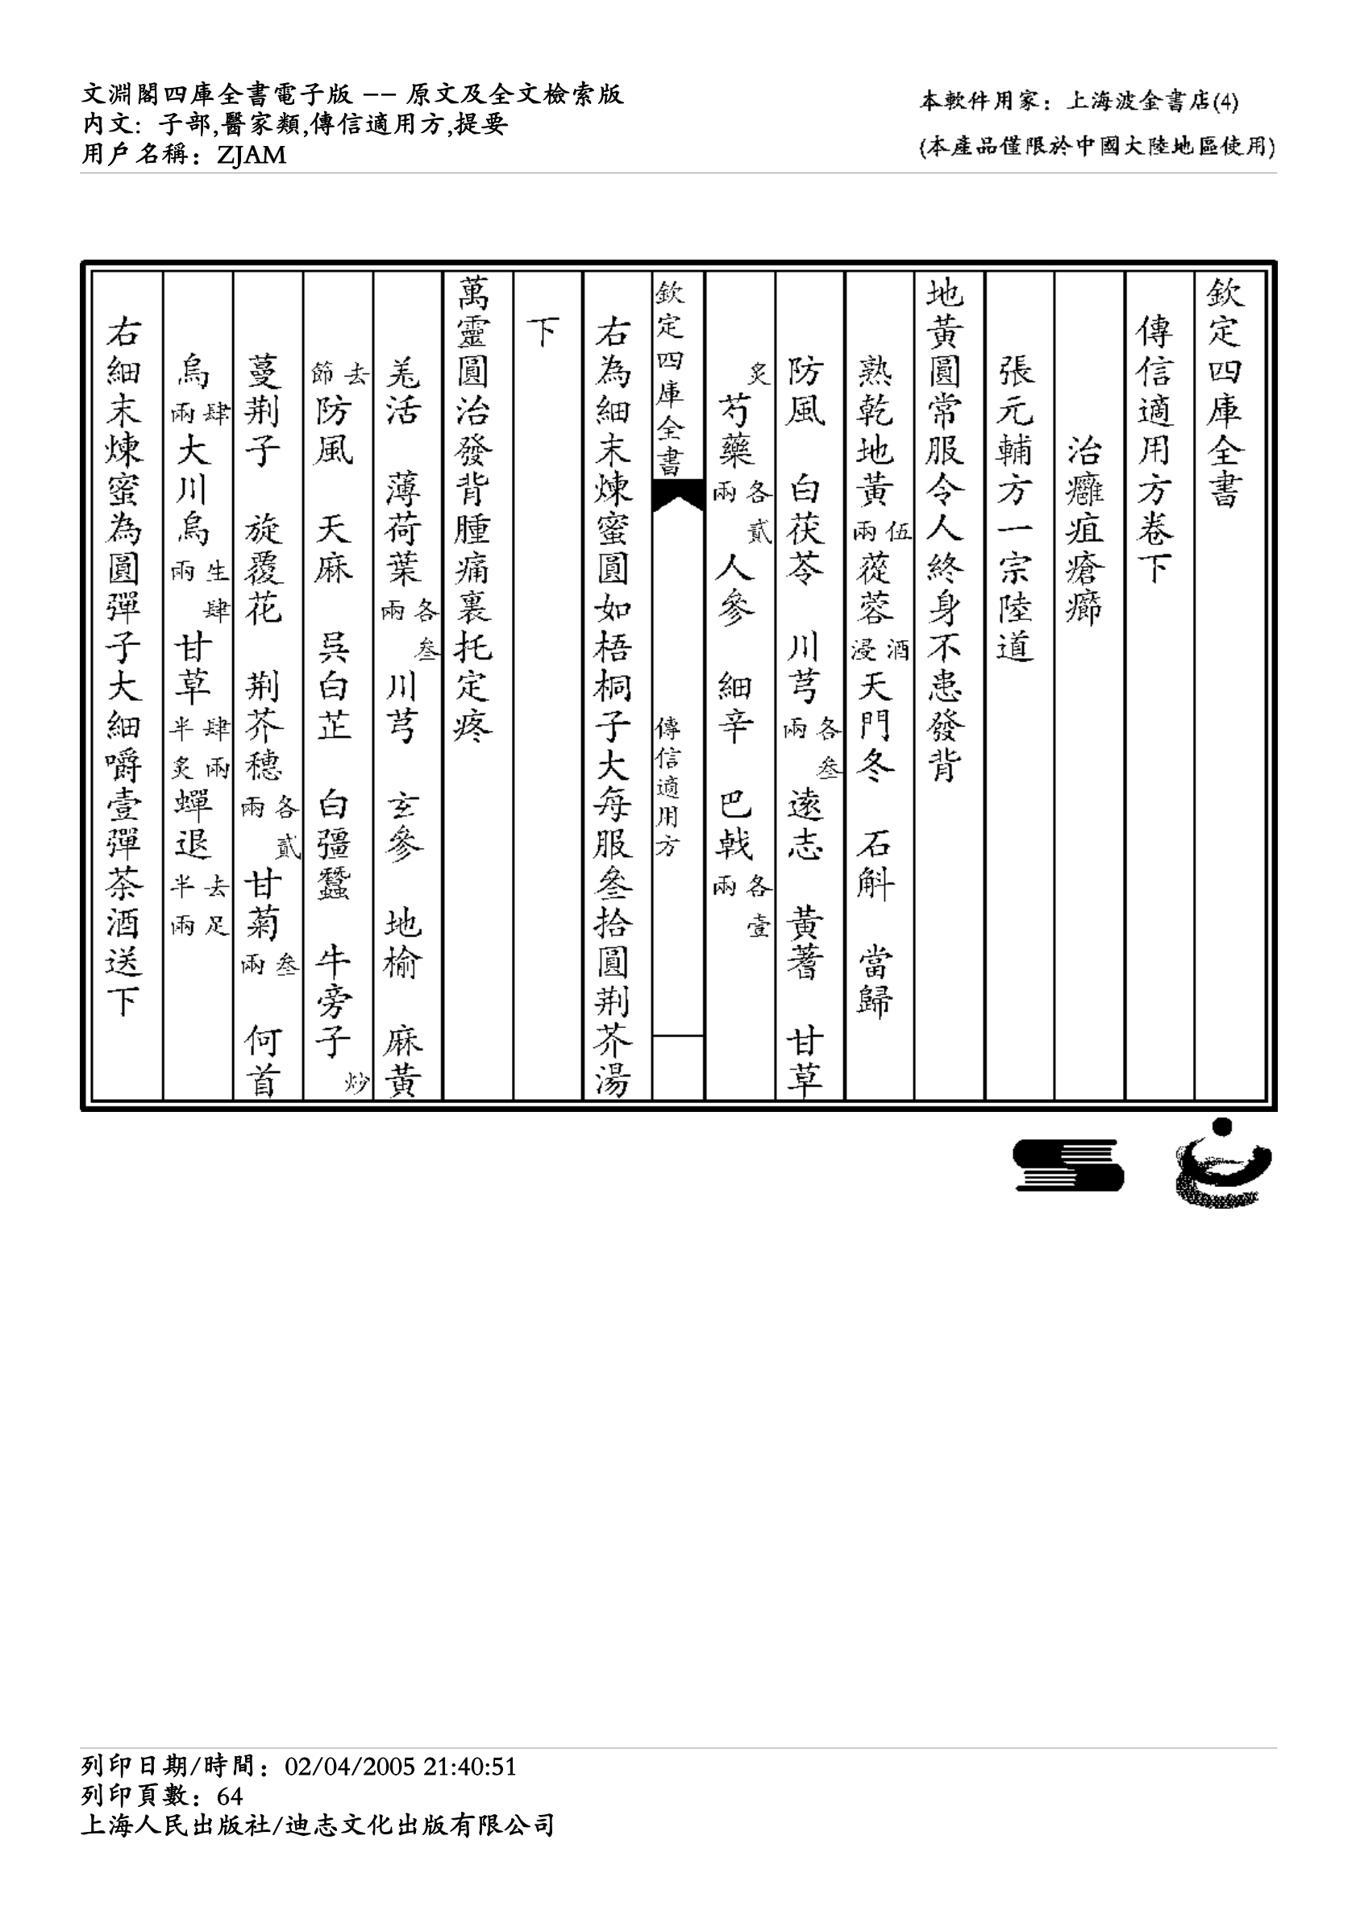 文淵閣四庫全書電子版 —— 原文及全文檢索版
内文：子部,醫家類,傳信適用方,提要
用戶名稱：ZJAM
本軟件用家：上海波金書店(4)
(本產品僅限於中國大陸地區使用)
欽定四庫全書
傳信適用方卷下
治癰疽瘡癤
張元輔方一宗陸道
地黃圓常服令人終身不患發背
熟乾地黃伍兩 蓯蓉酒浸 天門冬 石斛 當歸
防風 白茯苓 川芎各叁兩 遠志 黃蓍 甘草
炙 芍藥各貳兩 人參 細辛 巴戟各壹兩
欽定四庫全書 傳信適用方
右為細末煉蜜圓如梧桐子大每服叁拾圓荆芥湯
下
萬靈圓治發背腫痛裏托定疼
羌活 薄荷葉各叁兩 川芎 玄參 地榆 麻黃
去節 防風 天麻 吳白芷 白彊蠶 牛旁子炒
蔓荆子 旋覆花 荆芥穗各貳兩 甘菊叁兩 何首
烏肆兩 大川烏生肆兩 甘草肆兩半炙 蟬退去足半兩
右細末煉蜜為圓彈子大細嚼壹彈茶酒送下
列印日期/時間：02/04/2005 21:40:51
列印頁數：64
上海人民出版社/迪志文化出版有限公司